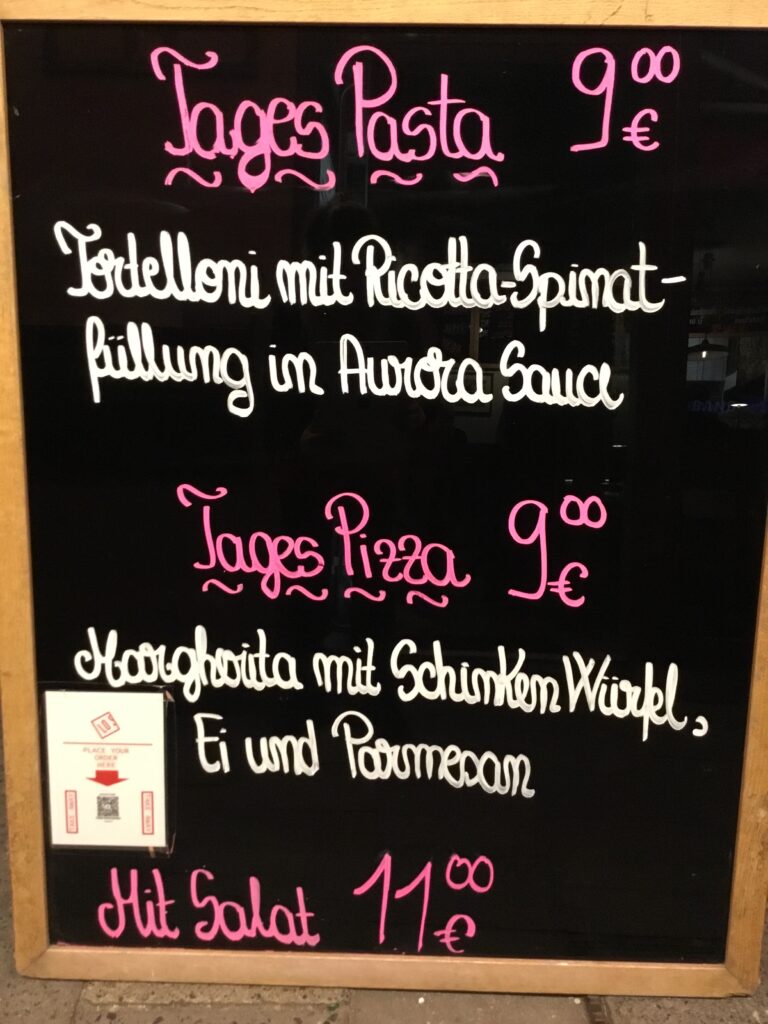 Tages Pasta 9,00 €
Tortelloni mit Ricotta-Spinat-
füllung in Aurora Sauce
Tages Pizza 9,00 €
Margherita mit Schinken Würfel,
Ei und Parmesan
PLACE YOUR
ORDER
HERE
Mit Salat 11,00 €